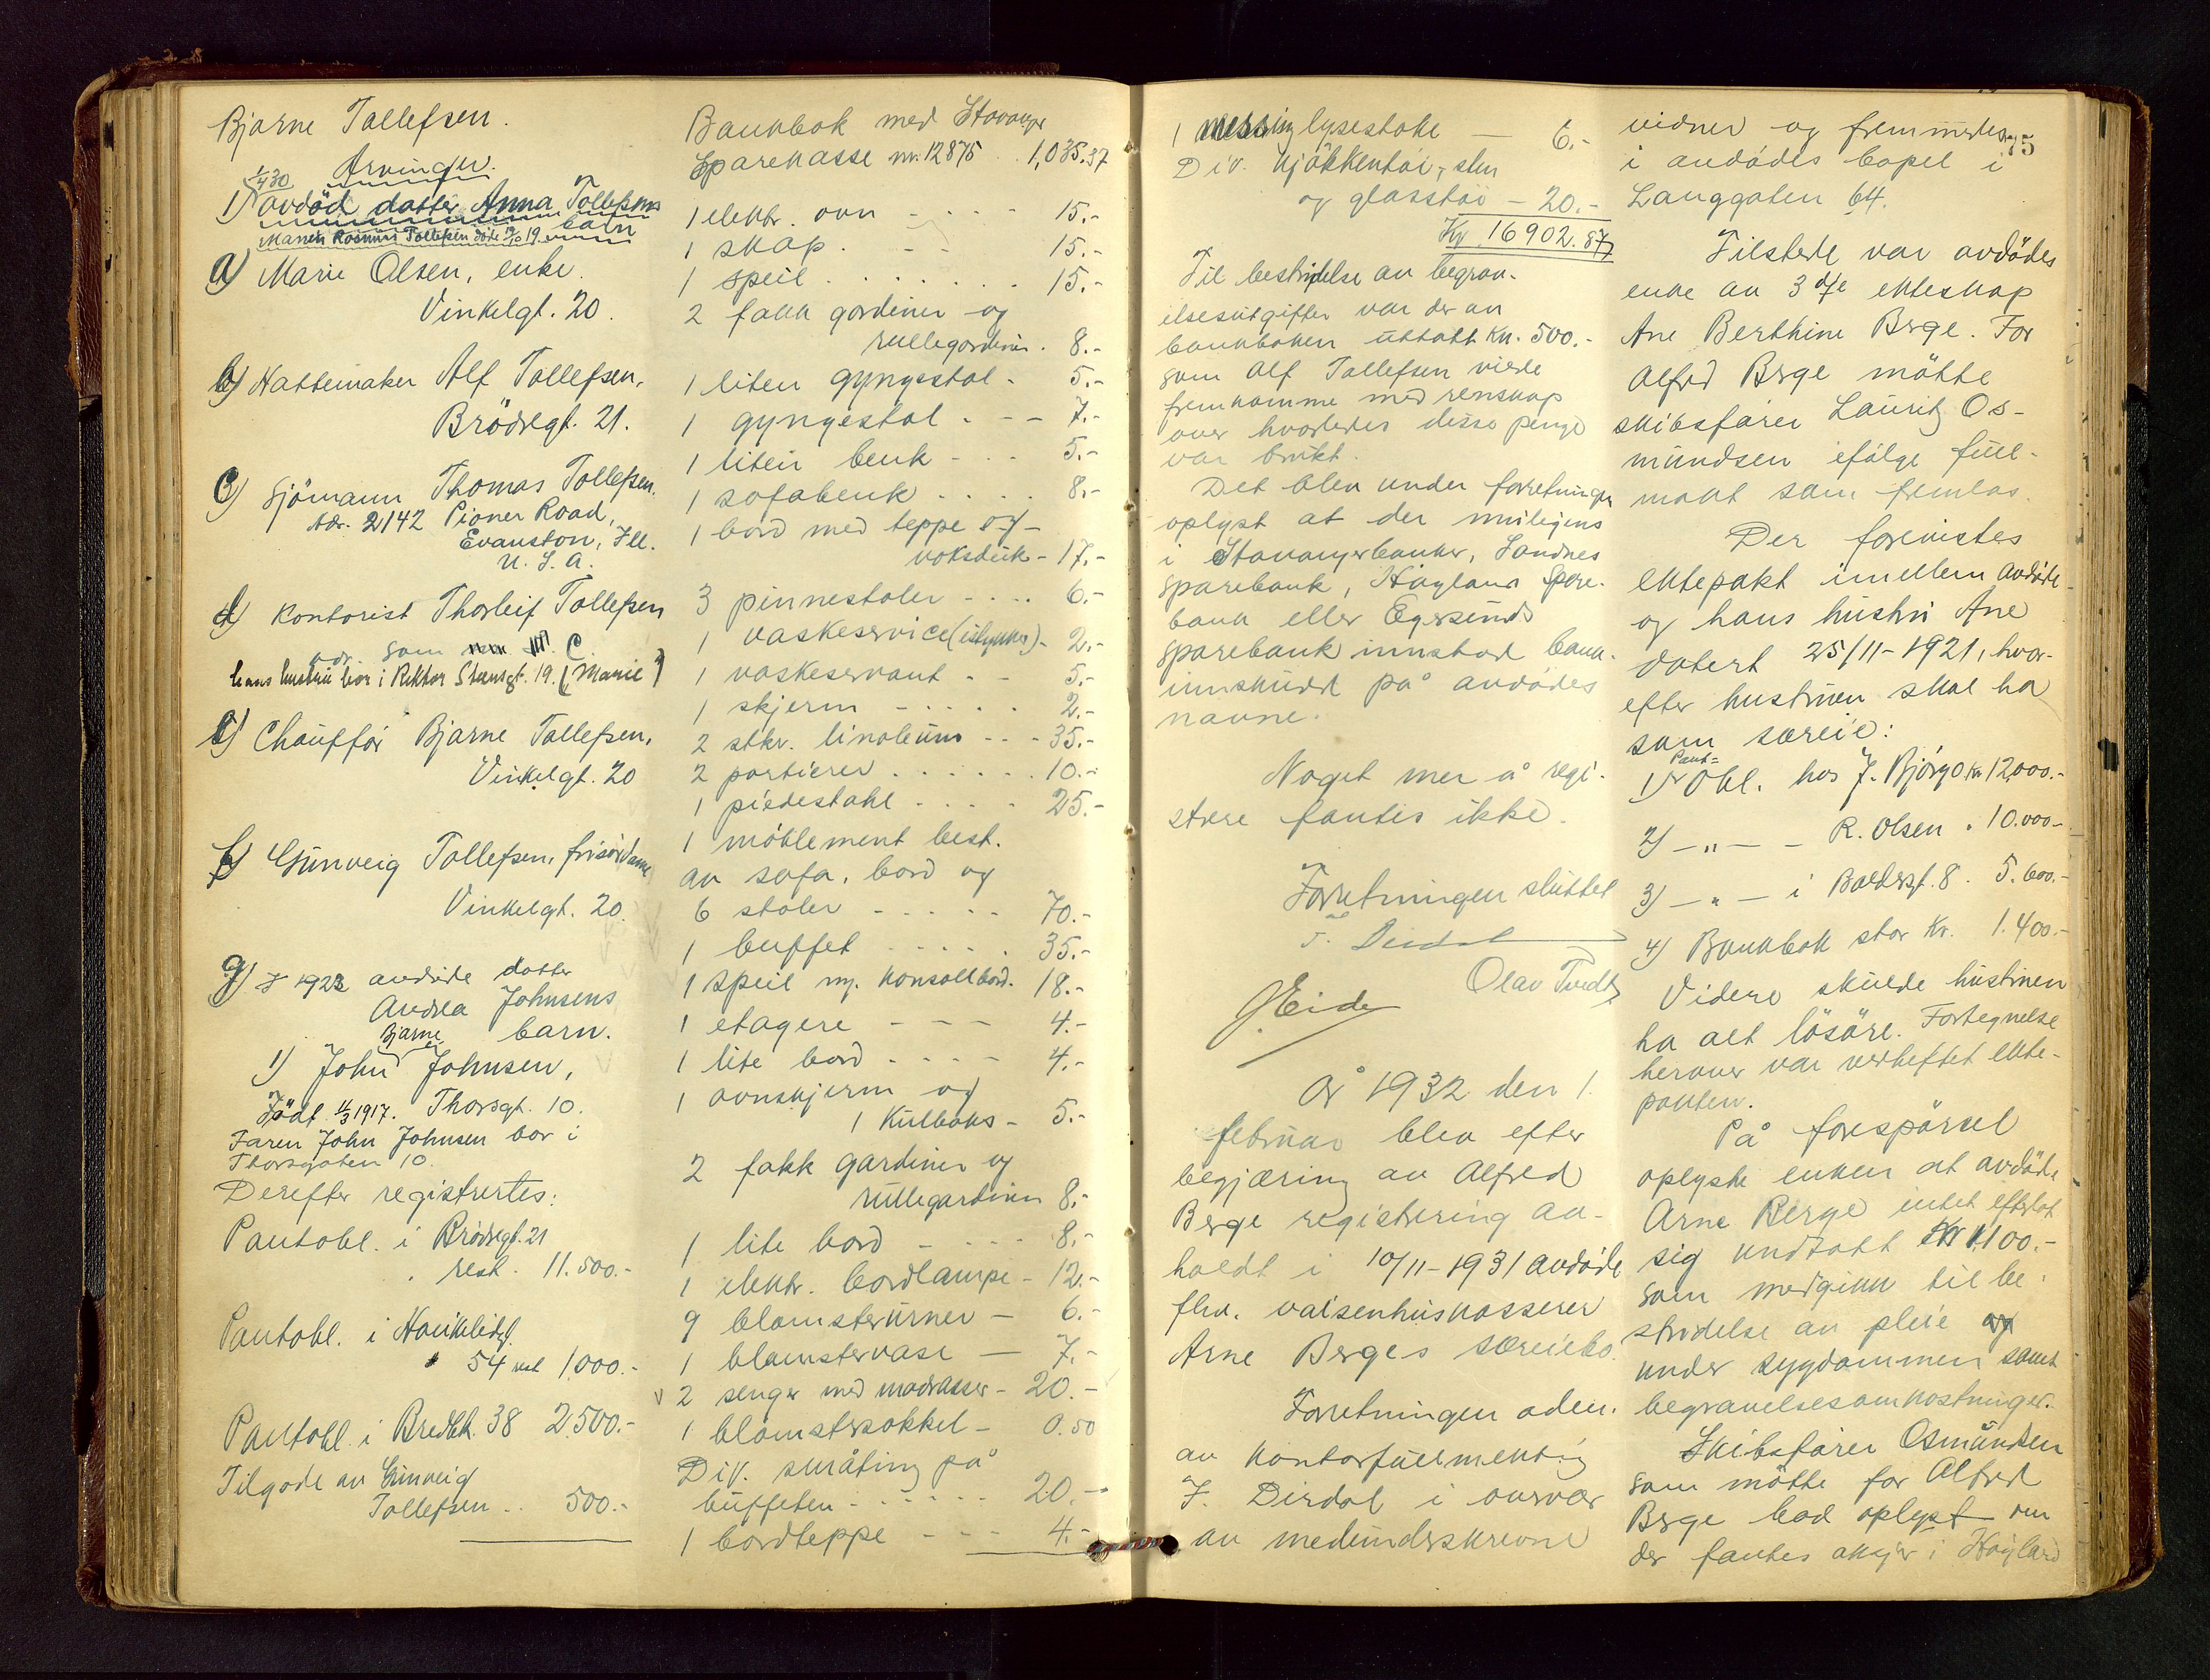 Bjarne Tollefsen.
Arvinger.
1/4 30
1) avdöd datter Anna Tollefsens
barn
Manen Rasmus Tollefsen döde 19/10 19.
a) Marie Olsen, enke.
Vinkelgt. 20.
b) Hattemaker Alf Tollefsen,
Brödregt. 21.
c) Sjömann Thomas Tollefsen.
Adr. 2142 Pioner Road,
Evanston, Ill.
U. S. A.
d) Kontorist Thorleif Tollefsen
adr. som C.
hans hustru bor i Rektor Steensgt. 19. (Marie)
e) Chaufför Bjarne Tollefsen,
Vinkelgt. 20
f) Gunveig Tollefsen, frisördame
Vinkelgt. 20.
g) I 1922 avdöde datter
Andrea Johnsens
barn.
Bjarne
1) John Johnsen,
Född 4/3 1917. Thorsgt. 10.
Faren John Johnsen bor i
Thorsgaten 10.
Derefter registrertes:
Pantobl. i Brödregt. 21
rest. 11.500.-
Pantobl. i Haukeligt.
54 rest 1000.-
Pantobl. i Bredbk. 38 2.500.-
Tilgode av Gunveig
Tollefsen .. 500.-
Bankbok med Stavanger
Sparekasse nr. 12875 .. 1,035.37
1 elektr. ovn - - - - 15.-
1 skap. - - 15.-
1 speil . . . . . . . 15.-
2 fakk gardiner og
rullegardiner. 8.-
1 liten gyngestol - 5.-
1 gyngestol . - - 7.-
1 liten benk - - - 5.-
1 sofabenk . . . . 8.-
1 bord med teppe og
voksduk - 17.-
3 pinnestoler - . . . 6.-
1 vaskeservice (istykker) - 2.-
1 vaskeservant - - 5.-
1 skjerm - . . . . 2.-
2 stkr. linoleum - - - 35.-
2 portierer . . . . . . 10.-
1 piedestahl - . . . 25.-
1 möblement best.
av sofa, bord og
6 stoler - - - - - 70.-
1 buffet - . . . . . 35.-
1 speil m. konsollbord. 18.-
1 etagere - - - 4.-
1 lite bord - - - - 4.-
1 ovnskjerm og
1 kulboks - 5.-
2 fakk gardiner og
rullegardiner 8.-
1 lite bord - - - - 8.-
1 elektr. bordlampe - 12.-
9 blomsterurner - 6.-
1 blomstervase - 7.-
2 senger med madrasser - 20.-
1 blomstersokkel - 0.50
Div. småting på
buffeten - - - - - - 20.-
1 bordteppe - - - 4.-
1 messing lysestake - 6.-
Div. kjökkentöi, sten
og glasstöi - 20.-
Kr. 16902.87
Til bestridelse av begrav-
elsesutgifter var der av
bankboken uttatt kr. 500.-
som Alf Tollefsen vilde
fremkomme med renskap
over hvorledes disse penge
var brukt.
Det blev under forretningen
oplyst at der muligens
i Stavangerbanker, Sandnes
sparebank, Höyland Spare-
bank eller Egersunds
sparebank innstod bank-
innskudd på avdödes
navne.
Noget mer å regi-
strere fantes ikke.
Forretningen sluttet
F. Dirdal
Olav Tvedt
J. Eide
År 1932 den 1.
februar blev efter
begjæring av Alfred
Berge registrering av-
holdt i 10/11-1931 avdöde
fhv. vaisenhuskasserer
Arne Berges særeiebo.
Forretningen adm.
av kontorfullmektig
F. Dirdal i overvær
av medundeskrevne
75
vidner og fremmedes
i avdödes bopel i
Langgaten 64.
Tilstede var avdödes
enke av 3dje ekteskap
Ane Berthine Berge. For
Alfred Berge mötte
skibsförer Lauritz Os-
mundsen ifölge full-
makt som fremlas.
Der forevistes
ektepakt imellem avdöde
og hans hustru Ane
datert 25/11-1921, hvor-
efter hustruen skal ha
som særeie:
Pant=
1) Obl. hos J. Björgo. kr 12,000.-
2) -„- - R. Olsen „ 10.000.-
3) -„- i Baldersgt. 8. 5.600.-
4) Bankbok stor kr. 1.400.-
Videre skulde hustruen
ha alt lösöre. Fortegnelse
herover var verheftet ekte-
pakten.
På forespörsel
oplyste enken at avdöde
Arne Berge intet efterlot
sig undtatt kr 1.100.-
som medgikk til be-
stridelse av pleie og
under sygdommen samt
begravelsesomkostninger.
Skibsförer Osmundsen
som mötte for Alfred
Berge bad oplyst om
der fantes aksjer i Höyland